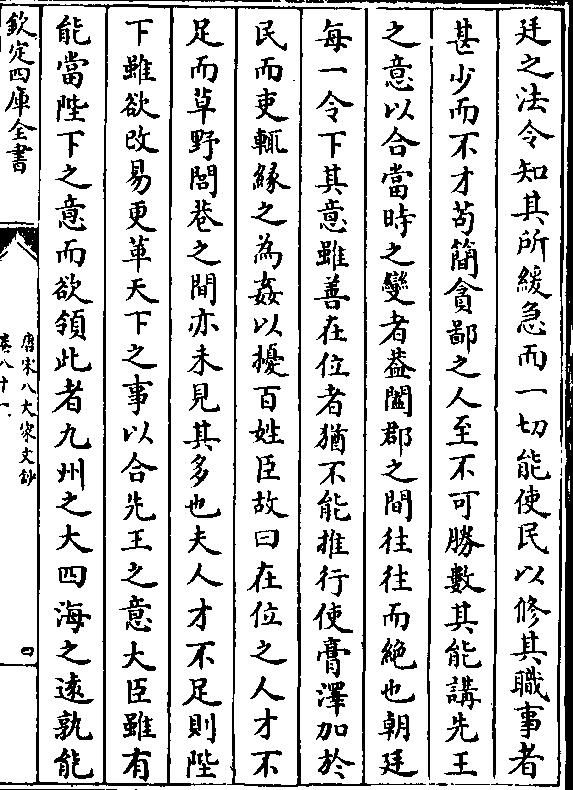 廷之法令知其所緩急而一切能使民以修其職事者
甚少而不才茍簡貪鄙之人至不可勝數其能講先王
之意以合當時之變者葢闔郡之間往往而絶也朝廷
每一令下其意雖善在位者猶不能推行使膏澤加於
民而吏輒緣之為姦以擾百姓臣故曰在位之人才不
足而草野閭巷之間亦未見其多也夫人才不足則陛
下雖欲改易更革天下之事以合先王之意大臣雖有
能當陛下之意而欲領此者九州之大四海之逺孰能
欽定四庫全書
唐宋八大家文鈔
卷八十一